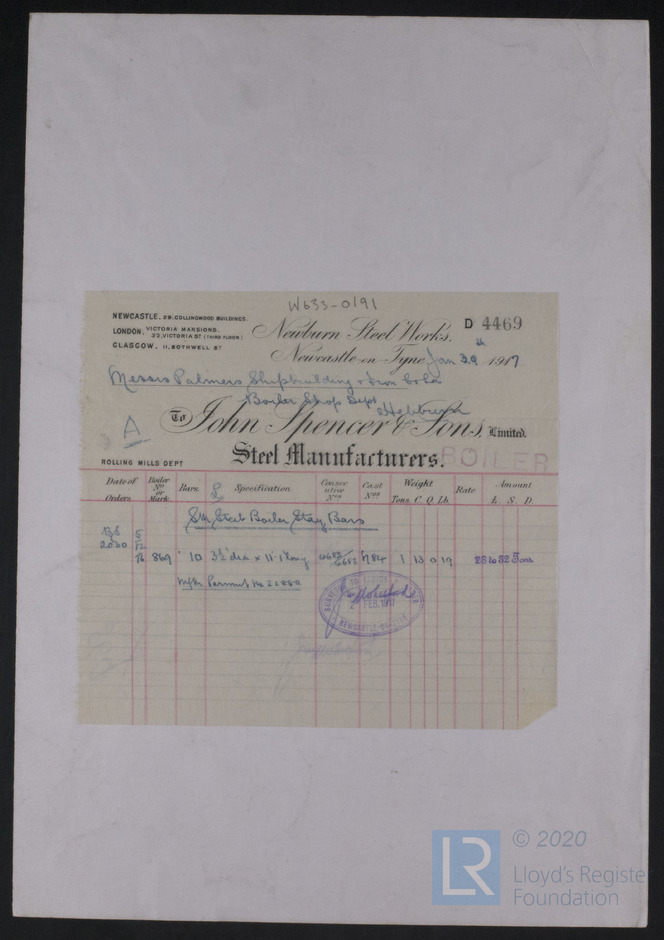 W633-0191
NEWCASTLE. 29. COLLINGWOOD BUILDINGS.
LONDON. VICTORIA MANSIONS.
32, VICTORIA ST (THIRD FLOOR)
GLASGOW. 11, BOTHWELL ST
Newburn Steel Works.
D 4469
Newcastle-on-Tyne, Jan 29th 1917
Messrs Palmers Shipbuilding & Iron Co Ld
Boiler Shop Dept
Hebburn
A
To John Spencer & Sons, Limited.
Steel Manufacturers.
BOILER
ROLLING MILLS DEPT
Date of Orders Boiler No or Mark Bars Specification Consecutive Nos Cast Nos Weight Tons. C. Q. Lb. Rate Amount L. S. D.
SM Steel Boiler Stay Bars
2030 5/12/16 869 10 3½" dia x 11'1" long 1 13 0 19 28 to 32 Tons
Mfr Permit No 22880
FEB. 1917
NEWCASTLE-ON-TYNE
LR
© 2020
Lloyd's Register
Foundation